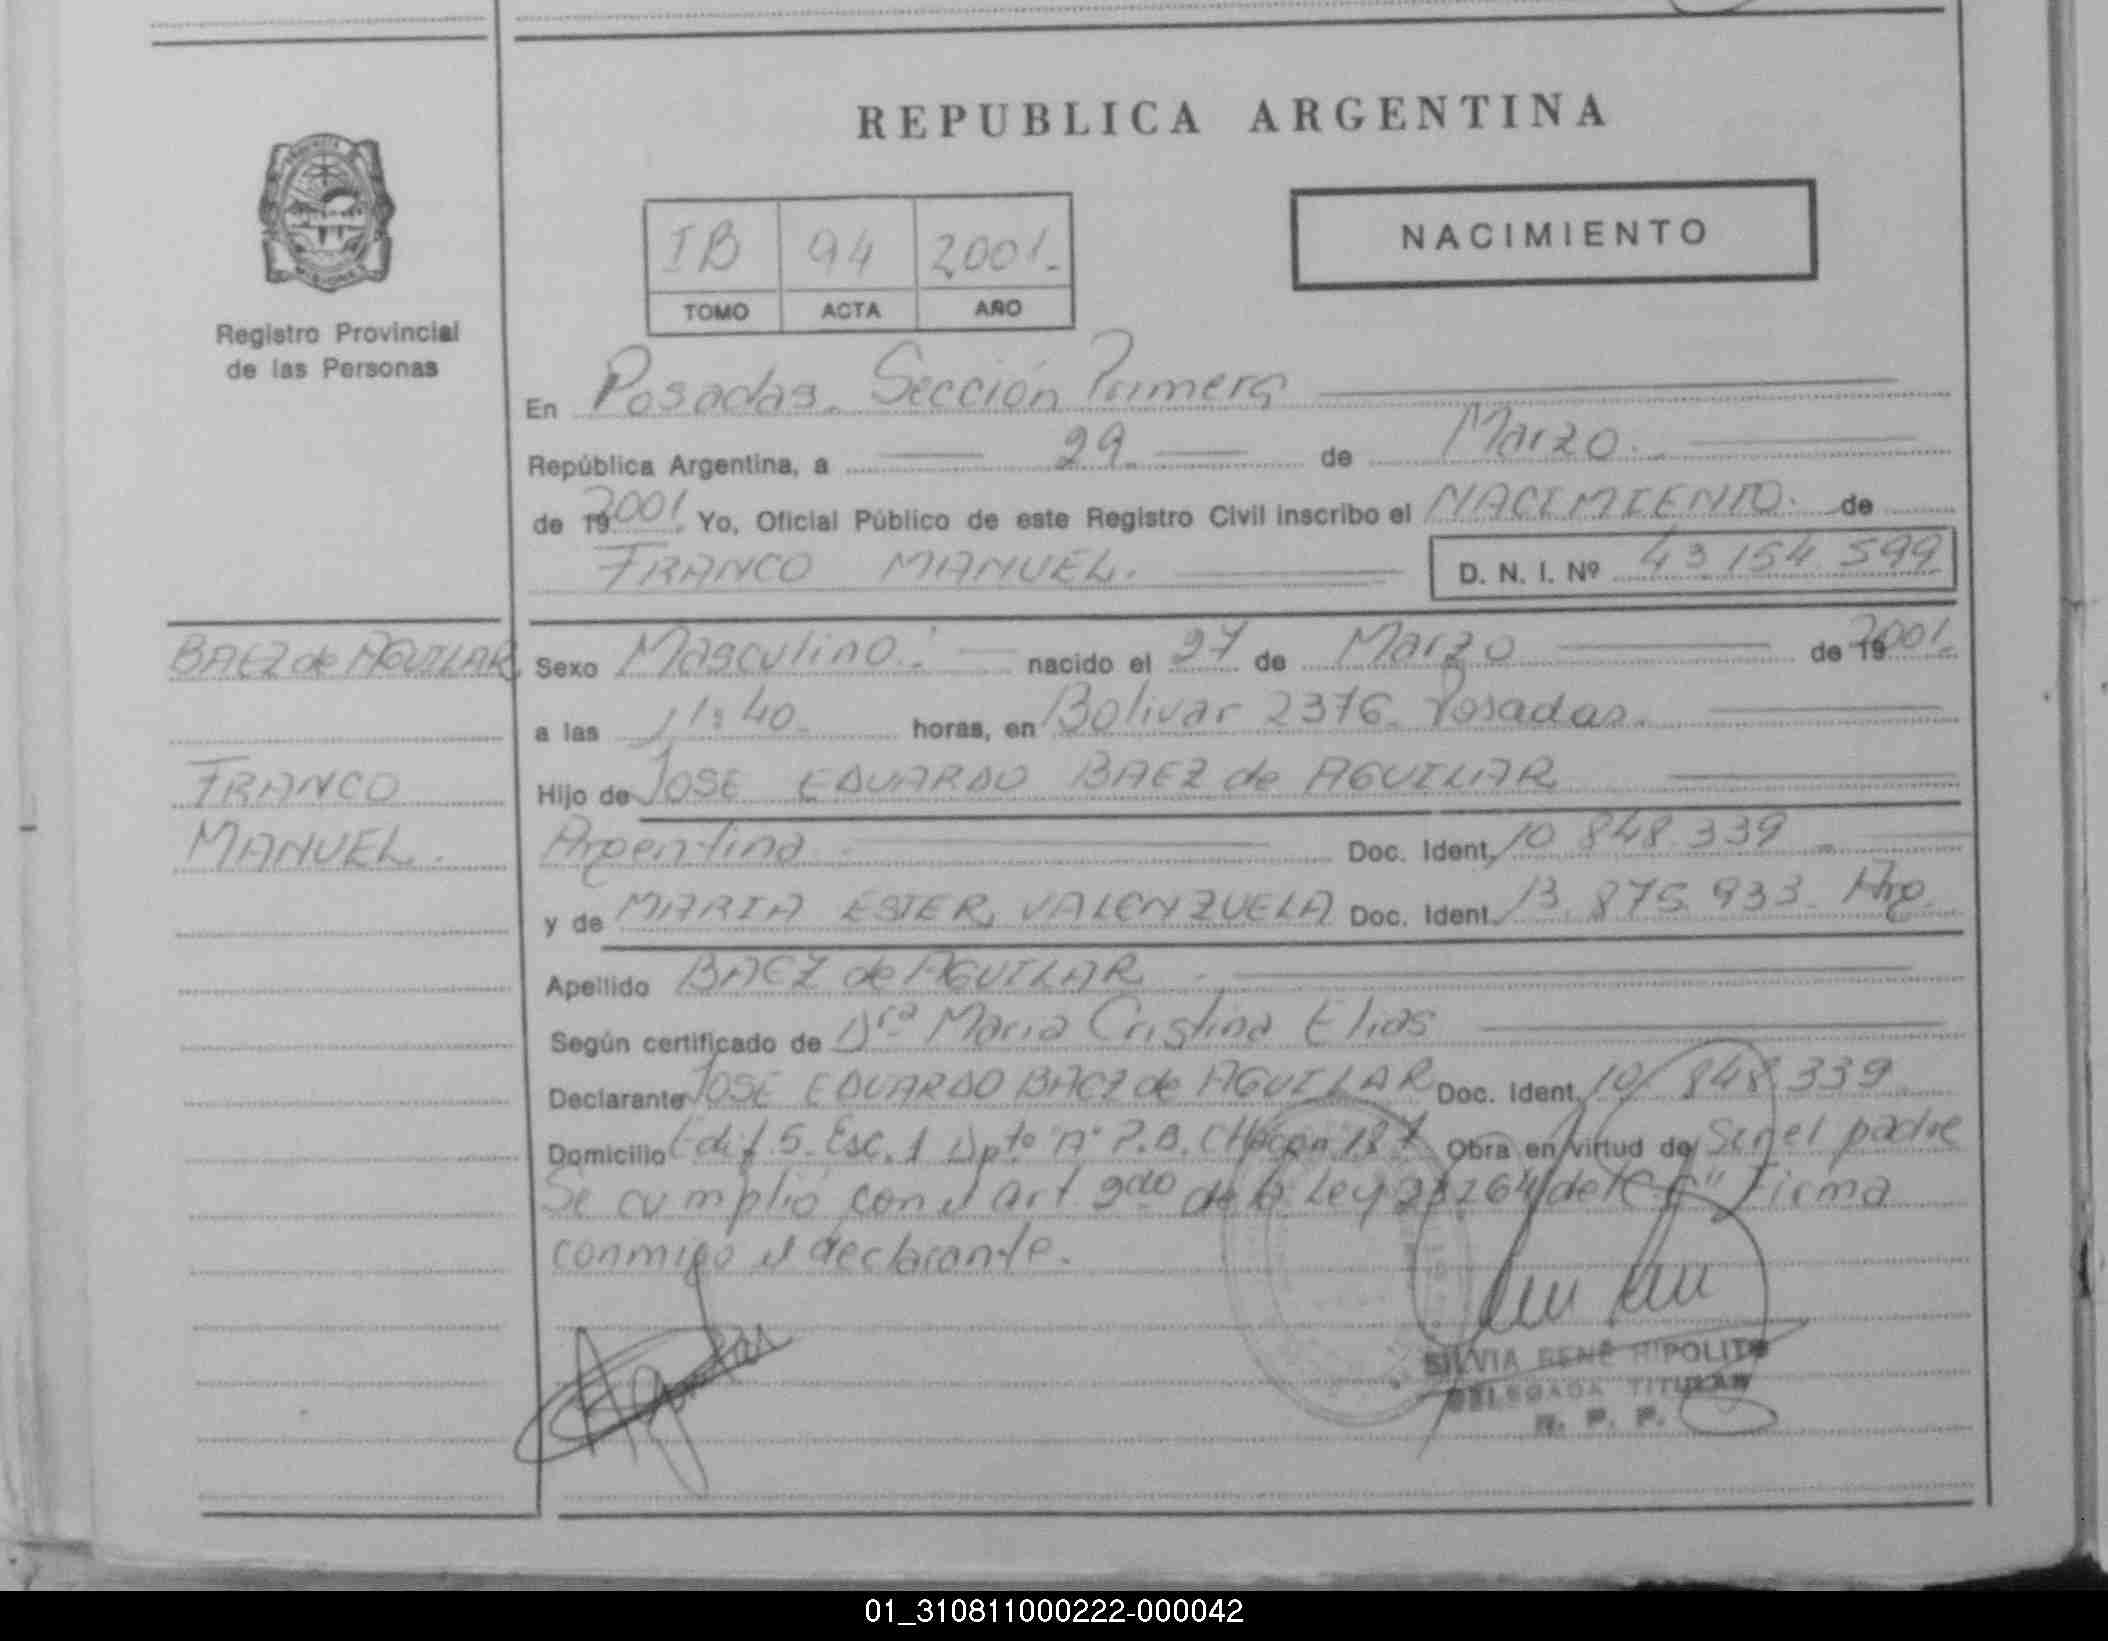 REPUBLICA ARGENTINA
NACIMIENTO
IB 94 2001.-
TOMO ACTA AÑO
Registro Provincial
de las Personas
En Posadas. Sección Primera
República Argentina, a 29 de Marzo.
de 19 2001. Yo, Oficial Público de este Registro Civil inscribo el NACIMIENTO. de
FRANCO MANUEL. D. N. I. Nº 43 154 599
BAEZ de AGUILAR
FRANCO
MANUEL.
Sexo Masculino. nacido el 27 de Marzo de 19 2001.
a las 11:40 horas, en Bolivar 2376. Posadas.
Hijo de JOSE EDUARDO BAEZ de AGUILAR
Argentina Doc. Ident. 10 848.339
y de MARIA ESTER VALENZUELA Doc. Ident. 13.875.933. Arg.
Apellido BAEZ de AGUILAR
Según certificado de Dra Maria Cristina Elias
Declarante JOSE EDUARDO BAEZ de AGUILAR Doc. Ident. 10 848 339
Domicilio Edif. 5. Esc. 1 Dpto "A" P.B. CHacon 187 Obra en virtud de Ser el padre
Se cumplió con el art. 2do de la Ley Firma
conmigo el declarante.
SILVIA RENE HIPOLITO
DELEGADA TITULAR
R. P. P.
01_310811000222-000042